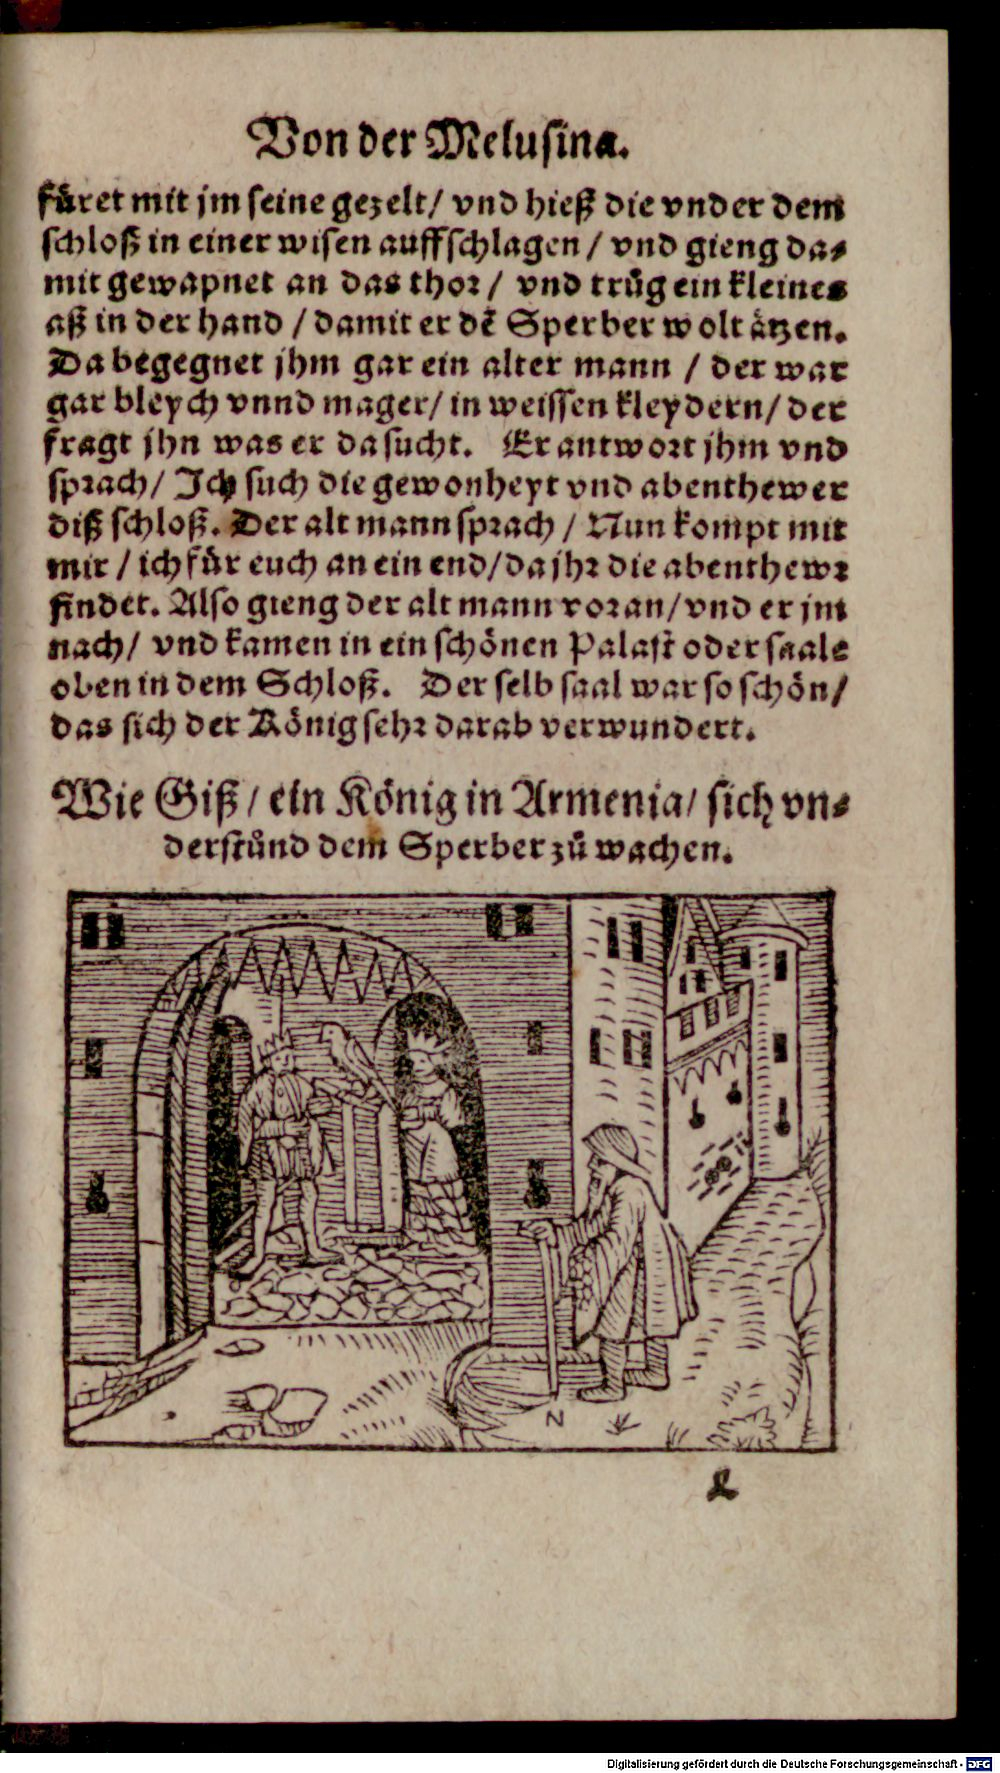 Von der Melusina.
fůret mit jm seine gezelt/ vnd hieß die vnder dem
schloß in einer wisen auffschlagen / vnd gieng da⸗
mit gewapnet an das thor / vnd trůg ein kleines
aß in der hand / damit er dē Sperber wolt ätzen.
Da begegnet jhm gar ein alter mann / der war
gar bleych vnnd mager/ in weissen kleydern/ der
fragt jhn was er da sucht. Er antwort jhm vnd
sprach/ Ich such die gewonheyt vnd abenthewer
diß schloß. Der alt mann sprach / Nun kompt mit
mir / ich für euch an ein end/ da jhr die abenthewr
findet. Also gieng der alt mann voran/ vnd er jm
nach/ vnd kamen in ein schönen Palast oder saale
oben in dem Schloß. Der selb saal war so schön/
das sich der König sehr darab verwundert.
Wie Giß/ ein König in Armenia/ sich vn⸗
derstůnd dem Sperber zů wachen.
N
Digitalisierung gefördert durch die Deutsche Forschungsgemeinschaft - DFG